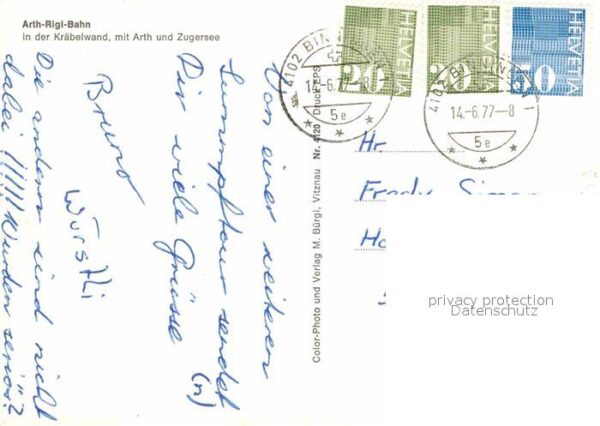 Arth-Rigi-Bahn
in der Kräbelwand, mit Arth und Zugersee
Von einer weiteren
Sumpftour sendet
Dir viele Grüsse (n)
Bruno
Würstli
Die andern sind nicht
dabei !!!!!! Wurden seriös?
Color-Photo und Verlag M. Bürgi, Vitznau Nr. 4120 Druck: EPS
HELVETIA 20
HELVETIA 20
HELVETIA 50
4102 BINNINGEN 1
14.-6.77-8
5e
4102 BINNINGEN 1
14.-6.77-8
5e
Hr.
Fredy
privacy protection
Datenschutz